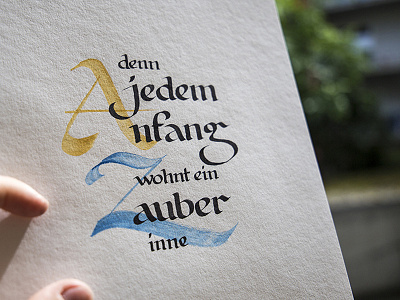 denn
jedem
Anfang
wohnt ein
Zauber
inne